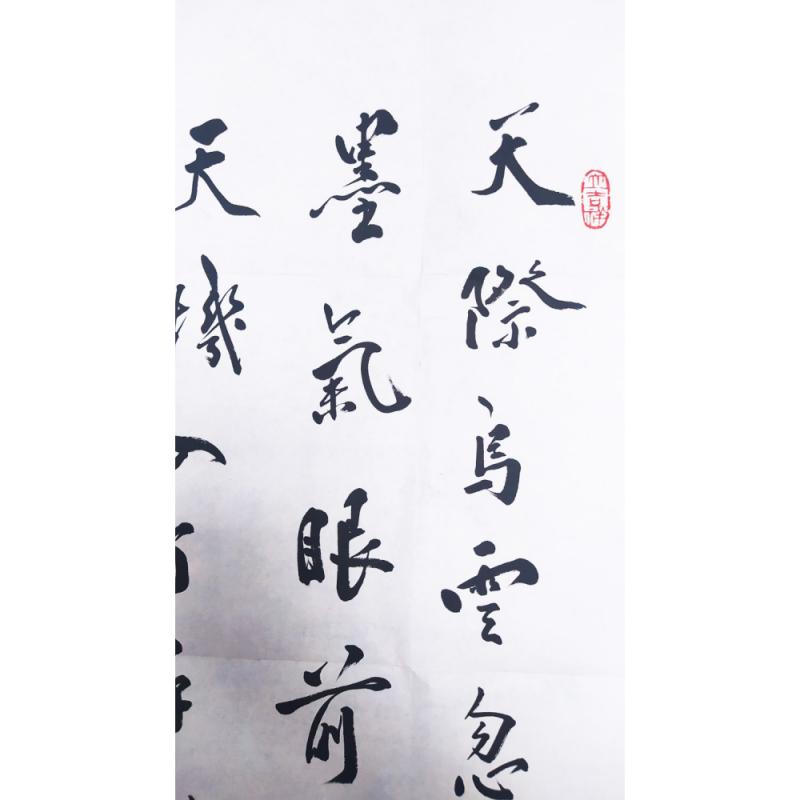 天際烏雲忽
墨氣眼前
天機